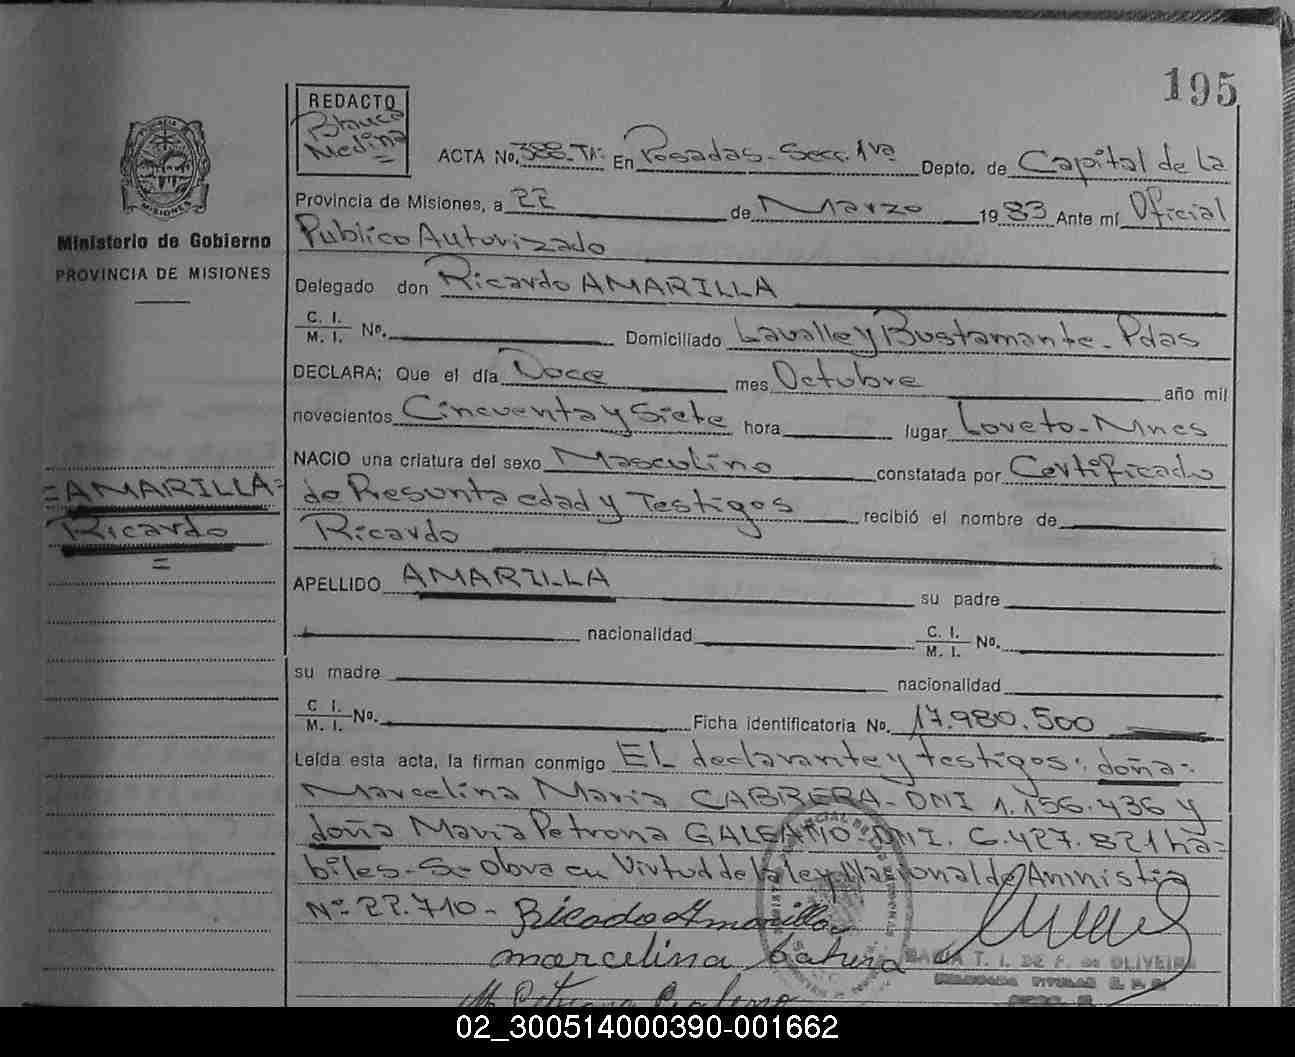 195
REDACTO
Blanca
Medina
ACTA No. 388-Tº: En Posadas-Secc. 1ra Depto. de Capital de La
Provincia de Misiones, a 22 de Marzo 1983 Ante mí Oficial
Publico Autorizado
Delegado don Ricardo AMARILLA
C. I. M. I. Nº. Domiciliado Lavalle y Bustamante-Pdas
DECLARA; Que el día Doce mes Octubre año mil
novecientos Cincuenta y Siete hora lugar Loreto-Mnes
NACIO una criatura del sexo Masculino constatada por Certificado
de Presunta edad y Testigos recibió el nombre de
Ricardo
APELLIDO AMARILLA su padre
nacionalidad C. I. M. I. Nº.
su madre nacionalidad
C. I. M. I. Nº. Ficha identificatoria No. 17.980.500
Leída esta acta, la firman conmigo El declarante y testigos: doña=
Marcelina Maria CABRERA-DNI 1.156.436 y
doña Maria Petrona DNI. 6.427.821 ha=
biles- Se Obra en Virtud de la ley Nacional de Amnistia
Nº 22.710-
Ricardo Amarilla
marcelina
DE OLIVEIRA
PROVINCIA DE
MISIONES
Ministerio de Gobierno
PROVINCIA DE MISIONES
=AMARILLA=
Ricardo
=
02_300514000390-001662